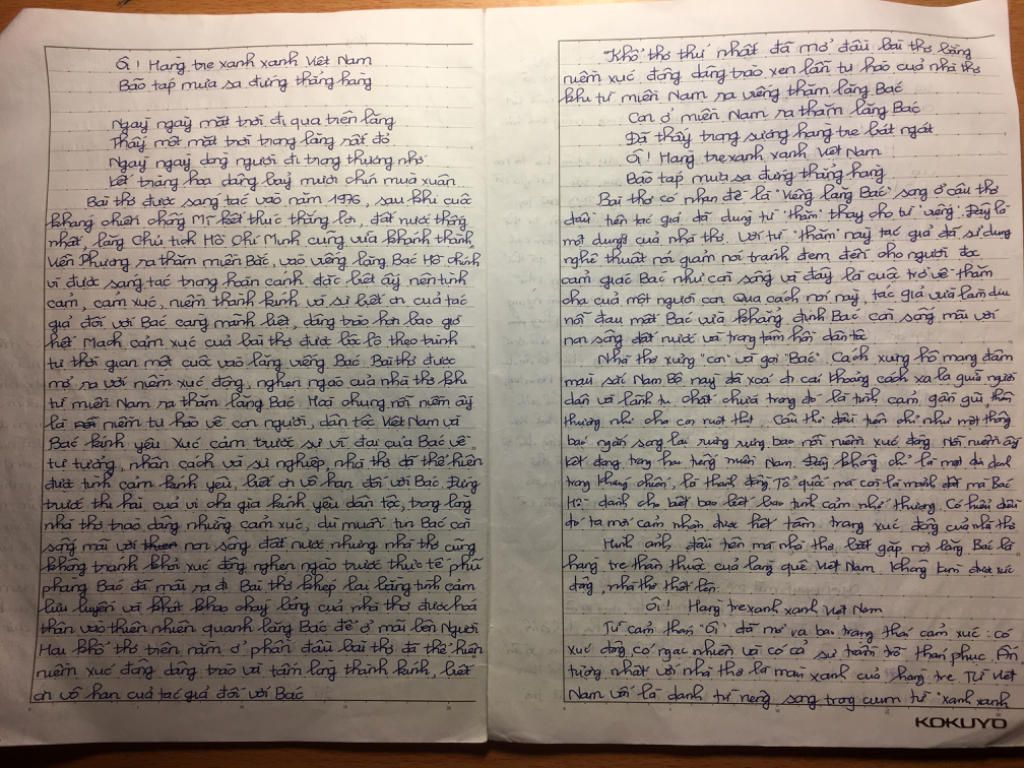 Ôi! Hàng tre xanh xanh Việt Nam
Bão táp mưa sa đứng thẳng hàng
Ngày ngày mặt trời đi qua trên lăng
Thấy một mặt trời trong lăng rất đỏ
Ngày ngày dòng người đi trong thương nhớ
Kết tràng hoa dâng bảy mươi chín mùa xuân
Bài thơ được sáng tác vào năm 1976, sau khi cuộc
kháng chiến chống Mĩ kết thúc thắng lợi, đất nước thống
nhất, lăng Chủ tịch Hồ Chí Minh cũng vừa khánh thành,
Viễn Phương ra thăm miền Bắc, vào viếng lăng Bác Hồ chính
vì được sáng tác trong hoàn cảnh đặc biệt ấy nên tình
cảm, cảm xúc, niềm thành kính và sự biết ơn của tác
giả đối với Bác càng mãnh liệt, dâng trào hơn bao giờ
hết Mạch cảm xúc của bài thơ được bộc lộ theo trình
tự thời gian một cuộc vào lăng viếng Bác. Bài thơ được
mở ra với niềm xúc động, nghẹn ngào của nhà thơ khi
từ miền Nam ra thăm lăng Bác. Hoà chung nỗi niềm ấy
là niềm tự hào về con người, dân tộc Việt Nam và
Bác kính yêu Xúc cảm trước sự vĩ đại của Bác về
tư tưởng, nhân cách và sự nghiệp, nhà thơ đã thể hiện
được tình cảm kính yêu, biết ơn vô hạn đối với Bác. Đứng
trước thi hài của vị cha già kính yêu dân tộc, trong lòng
nhà thơ trào dâng những cảm xúc, dù muốn tin Bác còn
sống mãi với non sông đất nước nhưng nhà thơ cũng
không tránh khỏi xúc động nghẹn ngào trước thực tế phũ
phàng Bác đã mãi ra đi Bài thơ khép lại bằng tình cảm
lưu luyến và khát khao cháy bỏng của nhà thơ được hoá
thân vào thiên nhiên quanh lăng Bác để ở mãi bên Người
Hai khổ thơ trên nằm ở phần đầu bài thơ đã thể hiện
niềm xúc động dâng trào và tấm lòng thành kính, biết
ơn vô hạn của tác giả đối với Bác
Khổ thơ thứ nhất đã mở đầu bài thơ bằng
niềm xúc động dâng trào xen lẫn tự hào của nhà thơ
khi từ miền Nam ra viếng thăm lăng Bác
Con ở miền Nam ra thăm lăng Bác
Đã thấy trong sương hàng tre bát ngát
Ôi! Hàng tre xanh xanh Việt Nam
Bão táp mưa sa đứng thẳng hàng
Bài thơ có nhan đề là "Viếng lăng Bác" song ở câu thơ
đầu tiên tác giả đã dùng từ "thăm" thay cho từ "viếng". Đây là
một dụng ý của nhà thơ. Với từ "thăm" này tác giả đã sử dụng
nghệ thuật nói giảm nói tránh đem đến cho người đọc
cảm giác Bác như còn sống và đây là cuộc trở về thăm
cha của một người con Qua cách nói này, tác giả vừa làm dịu
nỗi đau mất Bác vừa khẳng định Bác còn sống mãi với
non sông đất nước và trong tâm hồn dân tộc
Nhà thơ xưng "con" và gọi "Bác". Cách xưng hô mang đậm
màu sắc Nam Bộ này đã xoá đi cái khoảng cách xa lạ giữa người
dân và lãnh tụ chất chứa trong đó là tình cảm gần gũi thân
thương như cha con ruột thịt. Câu thơ đầu tiên chỉ như một thông
báo ngắn song lại rưng rưng bao nỗi niềm xúc động Nỗi niềm ấy
kết đọng trong hai tiếng miền Nam. Đây không chỉ là một địa danh
trong kháng chiến, là thành đồng Tổ quốc mà còn là mảnh đất mà Bác
Hồ dành cho biết bao tình cảm nhớ thương. Có hiểu điều
đó ta mới cảm nhận được hết tâm trạng xúc động của nhà thơ
Hình ảnh đầu tiên mà nhà thơ bắt gặp nơi lăng Bác là
hàng tre thân thuộc của làng quê Việt Nam. Không kìm được xúc
động, nhà thơ thốt lên
Ôi! Hàng tre xanh xanh Việt Nam
Từ cảm thán "Ôi" đã mở ra bao trạng thái cảm xúc: có
xúc động, có ngạc nhiên và có cả sự trầm trồ thán phục. Ấn
tượng nhất với nhà thơ là màu xanh của hàng tre Từ Việt
Nam vốn là danh từ riêng song trong cụm từ "xanh xanh
KOKUYO